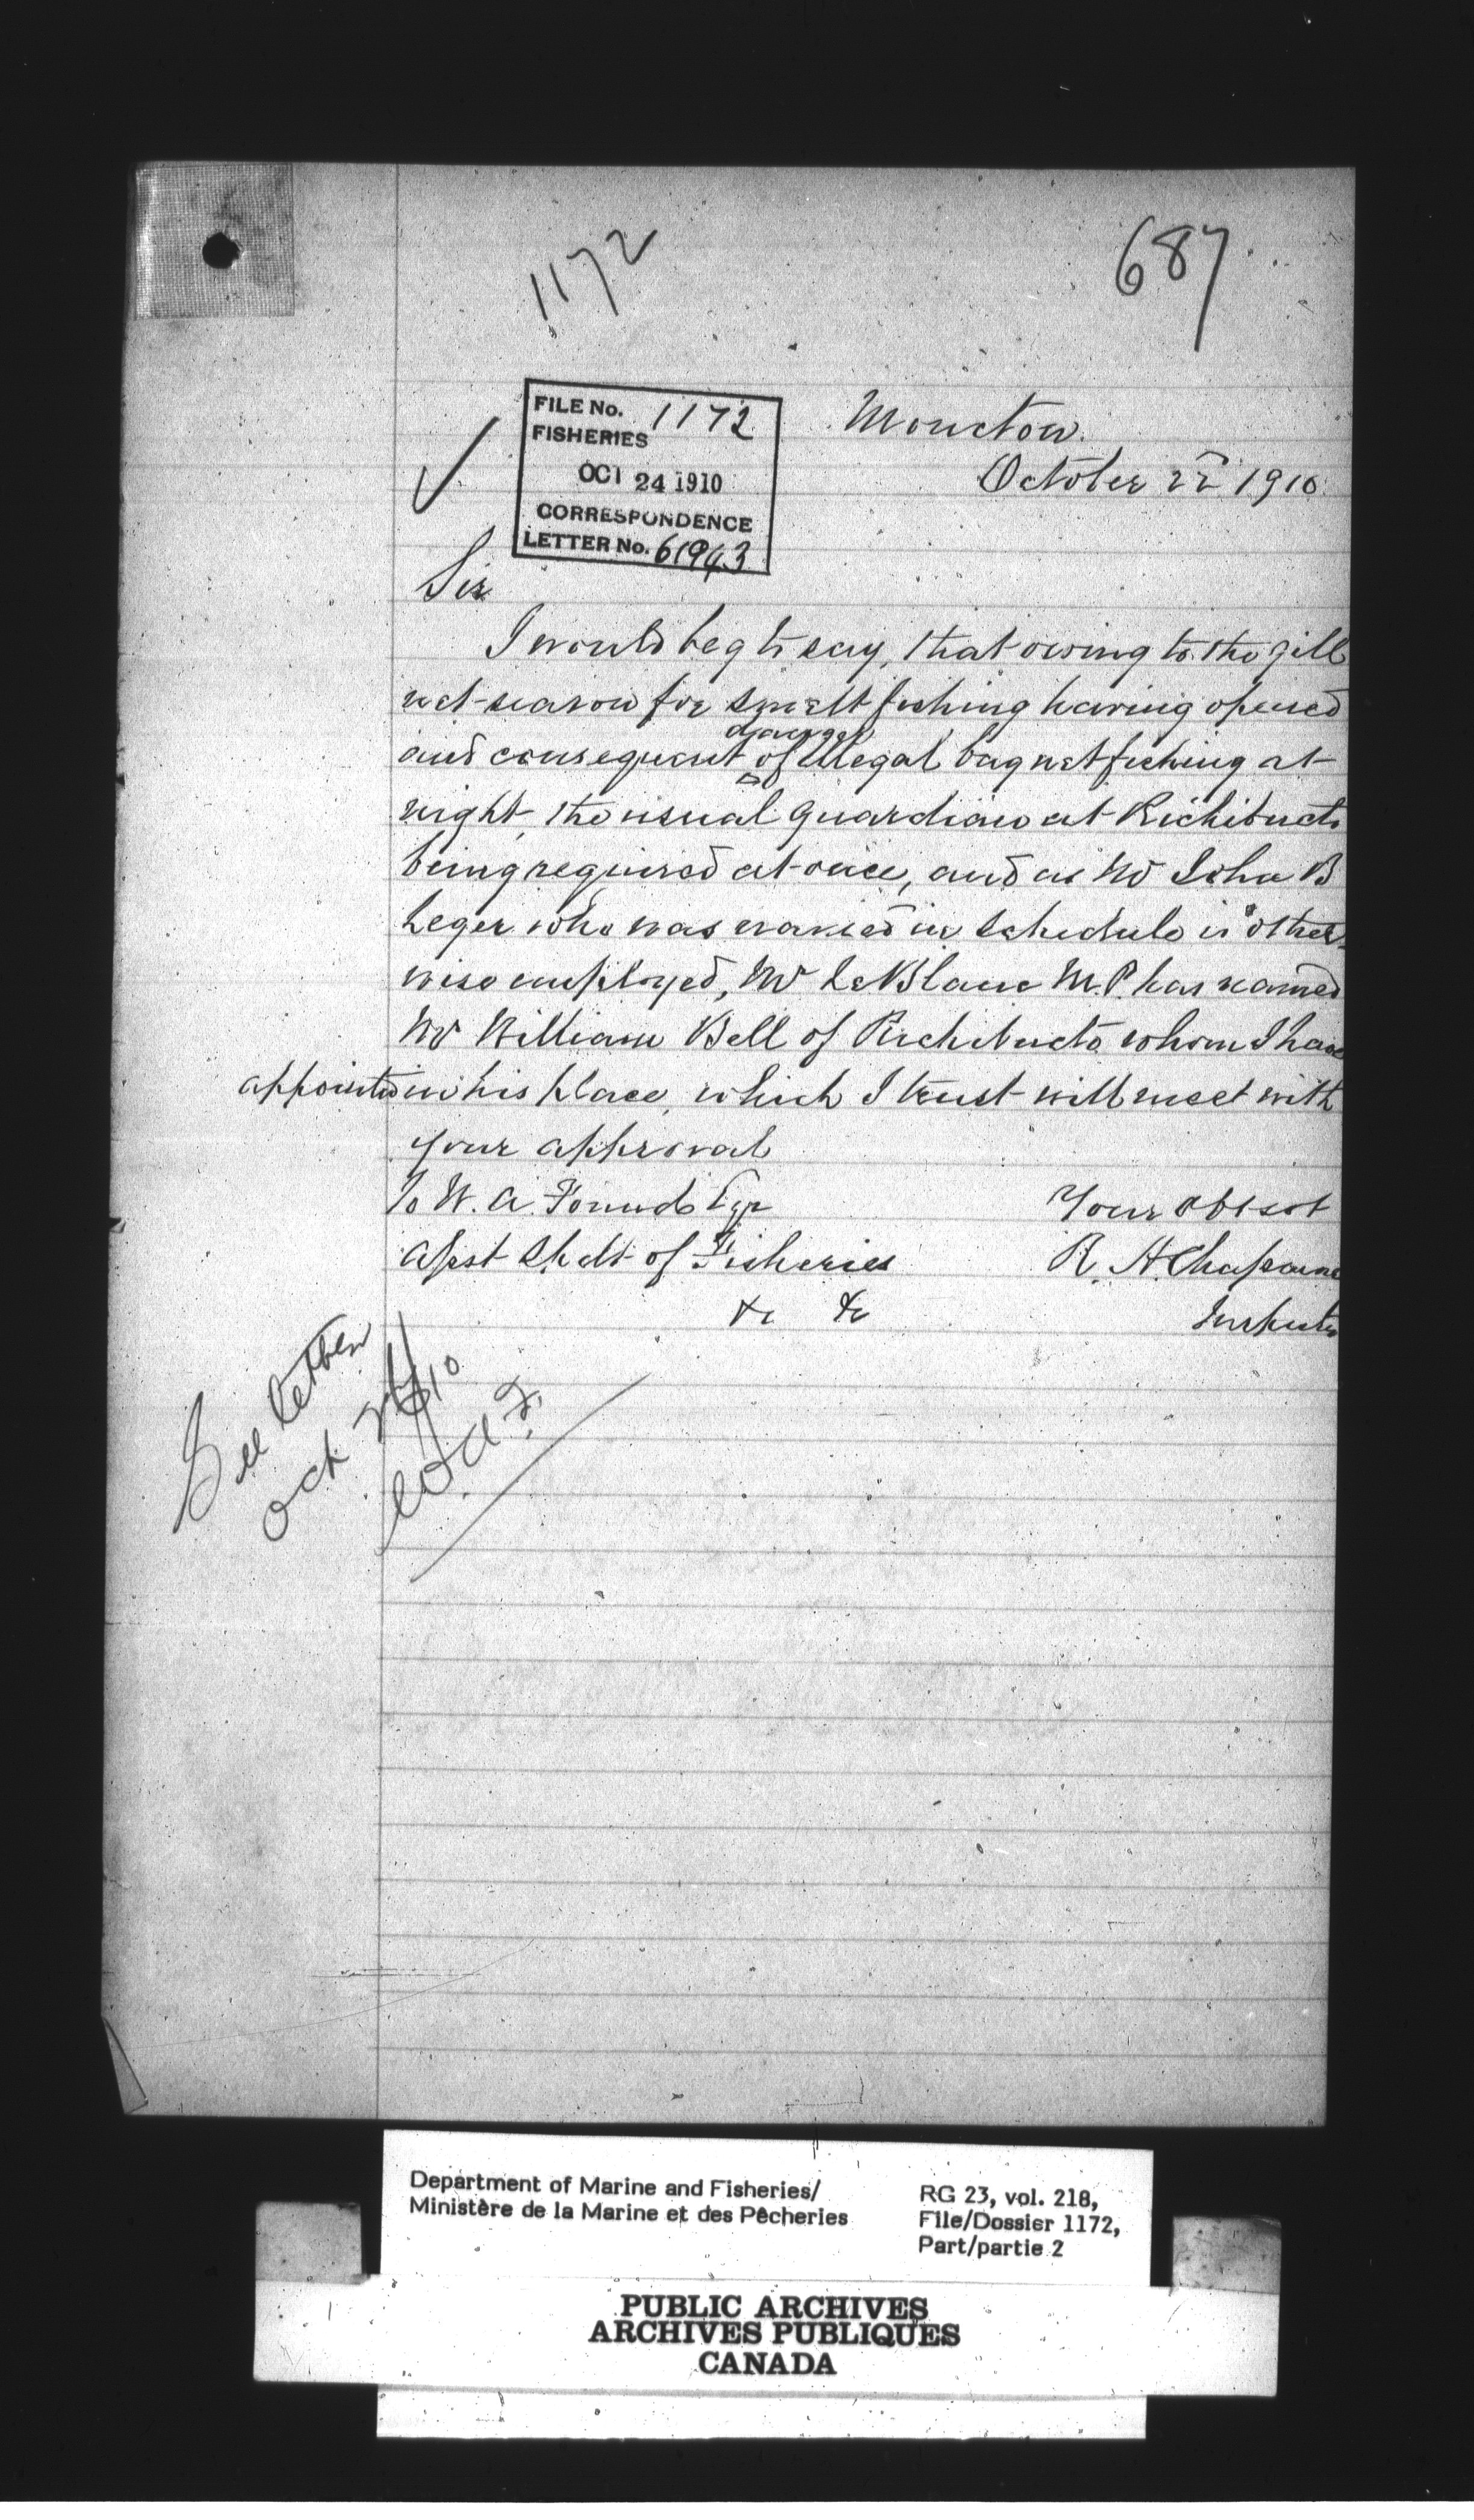 1172
687
FILE No. 1172
FISHERIES
OCT 24 1910
CORRESPONDENCE
LETTER No. 61943
Moncton.
October 22 1910
Sir
I would beg to say, that owing to the gill
net season for smelt fishing having opened
danger
and consequent of illegal bag net fishing at
night, the usual guardian at Richibucto
being required at once, and as Mr John B
Leger who was named in schedule is other
wise employed, Mr LeBlanc M.P. has named
Mr William Bell of Richibucto whom I have
appointed in his place, which I trust will meet with
your approval
To W. A. Found Esqr
Your obt svt
Asst Supdt of Fisheries
R. H. Chapman
&c &c
Inspector
See letter
Oct 26/10
W.A.F.
Department of Marine and Fisheries/
Ministère de la Marine et des Pêcheries
RG 23, vol. 218,
File/Dossier 1172,
Part/partie 2
PUBLIC ARCHIVES
ARCHIVES PUBLIQUES
CANADA